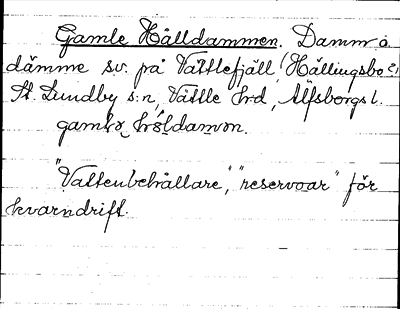 Gamle Hålldammen. Damm o
dämme sv. på Vättlefjäll, Hällingsbo
St. Lundby s:n, Vättle hd, Älfsborgs l.
"Vattenbehållare", "reservoar" för
kvarndrift.